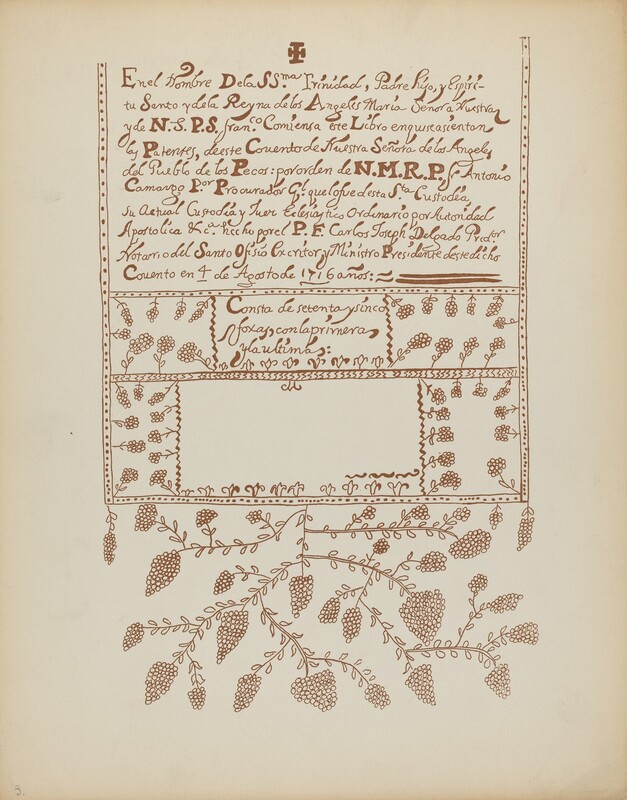 En el Nombre Dela SS.ma Trinidad, Padre hijo, y Espiri-
tu Santo y dela Reyna delos Angeles Maria Señora Nuestra
y de N.S.P.S, fran.co Comiensa este Libro enque se asientan
las Patentes, de este Covento de Nuestra Señora de los Angeles
del Pueblo de los Pecos: por orden de N.M.R.P. fr. Antonio
Camargo P.or Procurador G.l que lo fue desta S.ta Custodea,
Su Actual Custodia y Juez Eclesiastico Ordinario por Autoridad
Apostolica &c.a hecho por el P. F. Carlos Joseph Delgado Pred.or
Notario del Santo Ofisio Excritor y Ministro Presidente deste dicho
Covento en 4 de Agosto de 1716 años:
Consta de setenta y sinco
foxas, con la primera
y la ultima:
3.